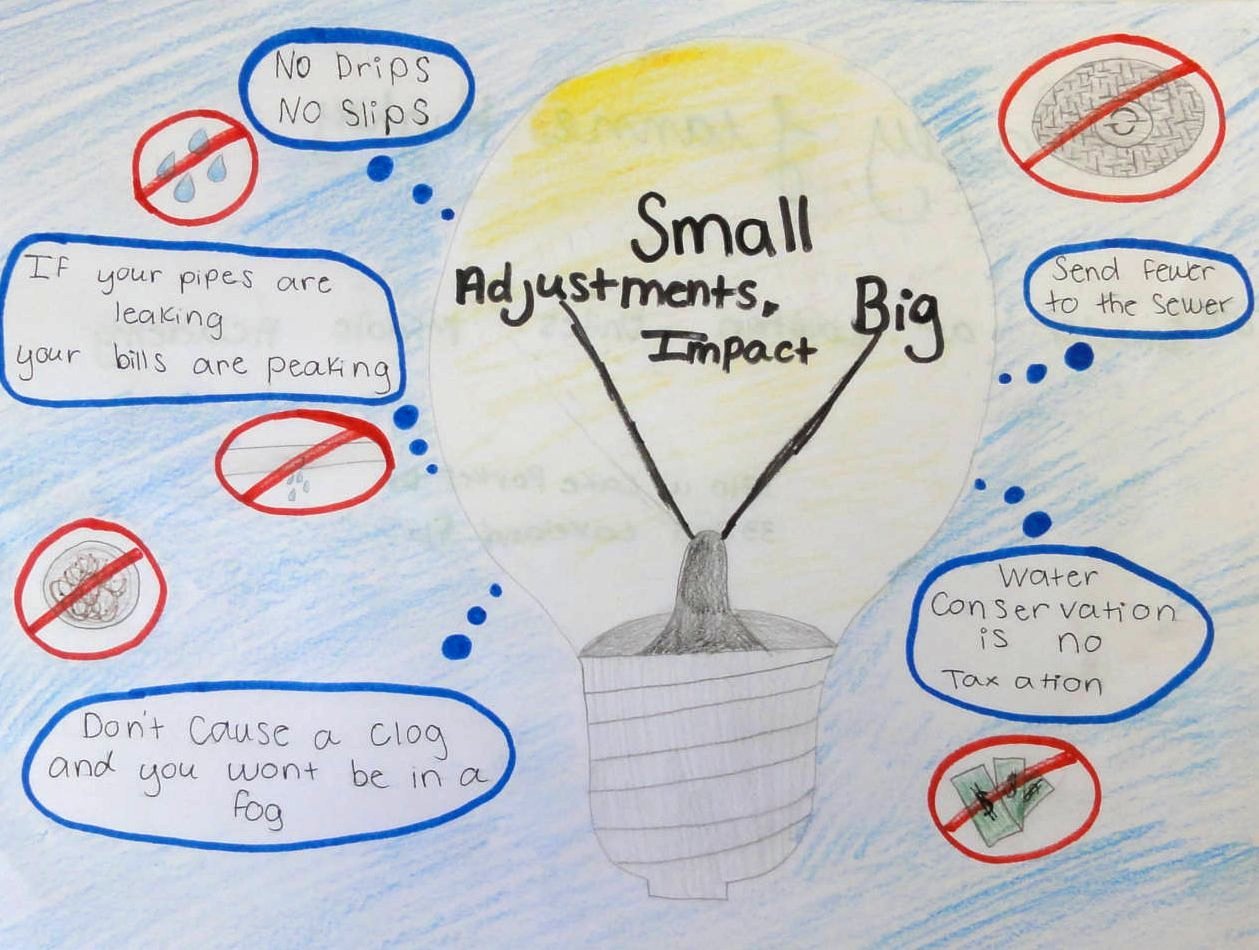 No Drips
No Slips
If your pipes are
leaking
your bills are peaking
Don't cause a clog
and you wont be in a
fog
Small
Adjustments, Big
Impact
Send fewer
to the sewer
Water
Conservation
is no
Taxation
$ $ $